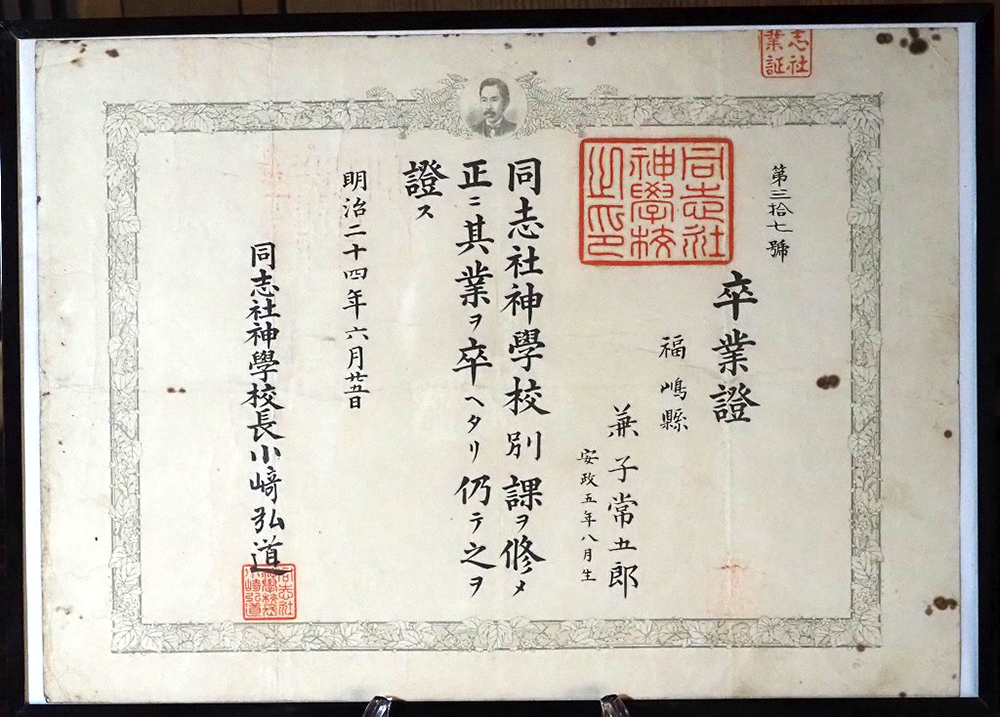 第三拾七號
卒業證
福嶋縣
兼子常五郎
安政五年八月生
同志社神學校別課ヲ修メ
正ニ其業ヲ卒ヘタリ仍テ之ヲ
證ス
明治二十四年六月廿五日
同志社神學校長小﨑弘道
志社
業証
同志社
神學校
之印